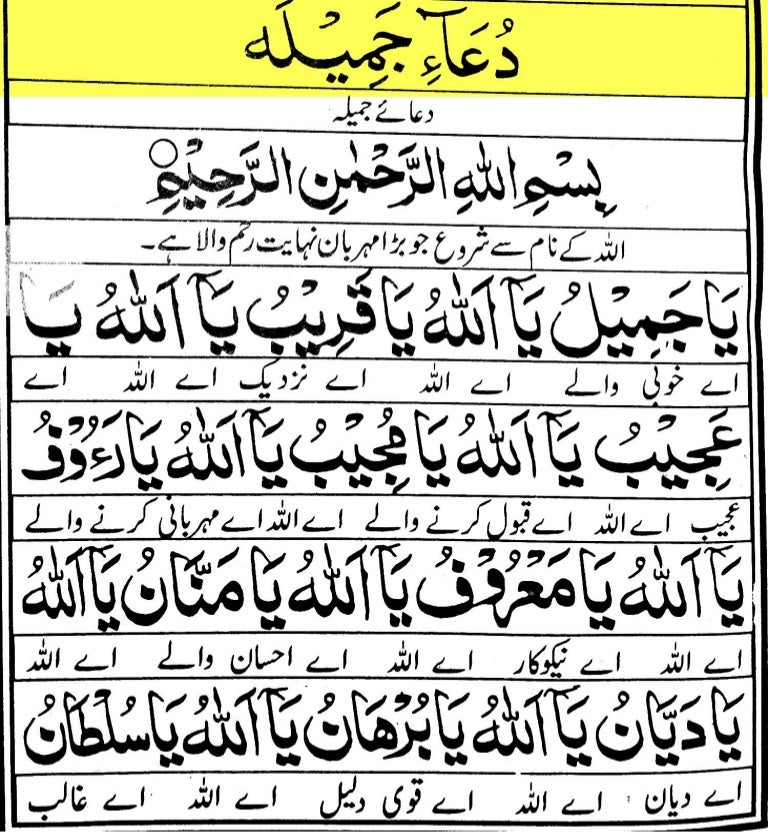 دُعَآءِ جَمِيْلَه
دعائے جمیلہ
بِسْمِ اللهِ الرَّحْمٰنِ الرَّحِيْمِ○
اللہ کے نام سے شروع جو بڑا مہربان نہایت رحم والا ہے۔
يَا جَمِيْلُ يَآ اَللهُ يَا قَرِيْبُ يَآ اَللهُ يَا
اے خوبی والے اے اللہ اے نزدیک اے اللہ اے
عَجِيْبُ يَآ اَللهُ يَا مُجِيْبُ يَآ اَللهُ يَا رَءُوْفُ
عجیب اے اللہ اے قبول کرنے والے اے اللہ اے مہربانی کرنے والے
يَآ اَللهُ يَا مَعْرُوْفُ يَآ اَللهُ يَا مَنَّانُ يَآ اَللهُ
اے اللہ اے نیکوکار اے اللہ اے احسان والے اے اللہ
يَا دَيَّانُ يَآ اَللهُ يَا بُرْهَانُ يَآ اَللهُ يَا سُلْطَانُ
اے دیان اے اللہ اے قوی دلیل اے اللہ اے غالب